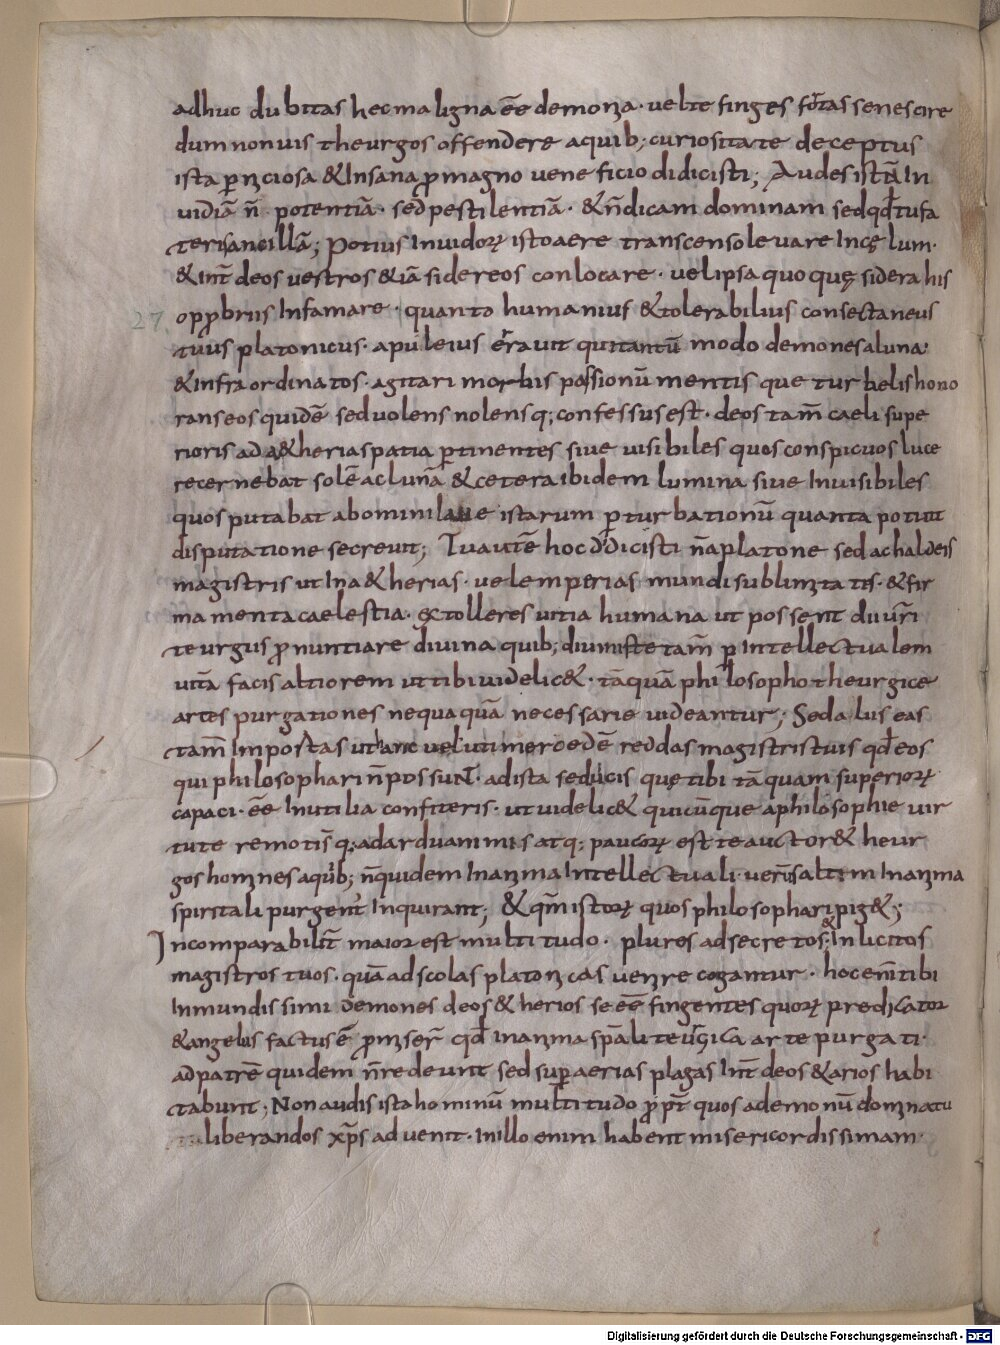 adhuc dubitas hec maligna eē demonia· vel te finges fortas se nescire
dum non vis theurgos offendere a quib; curiositate deceptus
ista p̄niciosa & insana p̄ magno veneficio didicisti; Audes istā in
vidiā n̄ potentiā· sed pestilentiā· & n̄ dicam dominam sed qđ tu fa
teris ancillā; Potius invidorꝝ isto aere transcenso levare in cęlum·
& int̄ deos vestros & iā sidereos conlocare· vel ipsa quoquę sidera his
opp̄briis infamare· quanto humanius & tolerabilius consectaneus
27
tuus platonicus· apuleius erravit qui tantū modo demones a luna·
& infra ordinatos· agitari morbis passionū mentis que turbelis hono
rans eos quidē sed volens nolensq; confessus est· deos tam̄ caeli supe
rioris ad aetheria spatia p̄tinentes sive visibiles quos conspicuos luce
re cernebat solē ac lunā & cetera ibidem lumina sive invisibiles
quos putabat ab omini labe istarum p̄turbationū quanta potuit
disputatione secrevit; Tu autē hoc didicisti n̄ a platone sed a chaldeis
magistris ut in aetherias· vel emperias mundi sublimitatis· & fir
mamenta caelestia· extolleres vitia humana ut possent dii vr̄i
teurgus p̄nuntiare divina quib; divinis te tam̄ p̄ intellectualem
vitā facis altiorem ut tibi videlic&· tāquā philosopho theurgice
artes purgationes nequaquā necessarie videantur; Sed alus eas
tam̄ importas ut hanc veluti mercedē reddas magistris tuis qđ eos
qui philosophari n̄ possunt· ad ista seducis quę tibi tā quam superiorꝝ
capaci· eē inutilia confiteris· ut videlic& quicūque a philosophie vir
tute remoti sq; ad ardua nimis atq; paucorꝝ est te auctore theur
gos homines a quib; n̄ quidem in anima intellectuali verūs altem in anima
spiritali purgent inquirant; & qm̄ istorꝝ quos philosophari pig&;
Incomparabilit̄ maior est multitudo· plures ad secretos & inlicitos
magistros tuos· quā ad scolas platonicas venire cogantur· hoc enī tibi
inmundissimi demones deos &herios se eē fingentes quorꝝ predicator
& angelus factus ē p̄miser̄ qđ in anima sp̄ali teurgica arte purgati·
ad patrē quidem n̄ redeunt sed sup̄ aerias plagas int̄ deos &arios habi
tabunt; Non audis ista hominū multitudo p̄pt̄ quos a demonū dominatu
liberandos xp̄s advenit· in illo enim habent misericordissimam
Digitalisierung gefördert durch die Deutsche Forschungsgemeinschaft - DFG